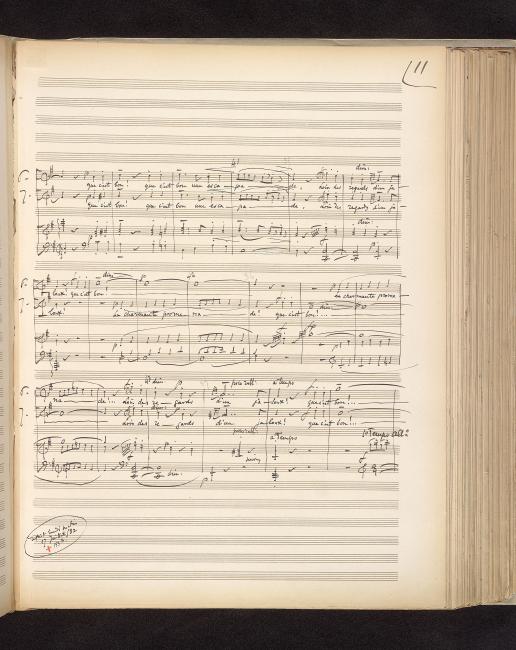 11
dim:
que c'est bon! que c'est bon une esca - pa - de, loin des regards d'un ja -
que c'est bon! que c'est bon une esca - pa - de, loin des regards d'un ja -
dim:
dim
loux! que c'est bon!
la charmante prome -
loux! la charmante prome - na - de! que c'est bon!..
dim
poco rall: a Tempo
na - de!... loin des re - gards d'un ja - loux! que c'est bon!...
loin des re - gards d'un ja - loux! que c'est bon!...
poco rall: a Tempo
dim.